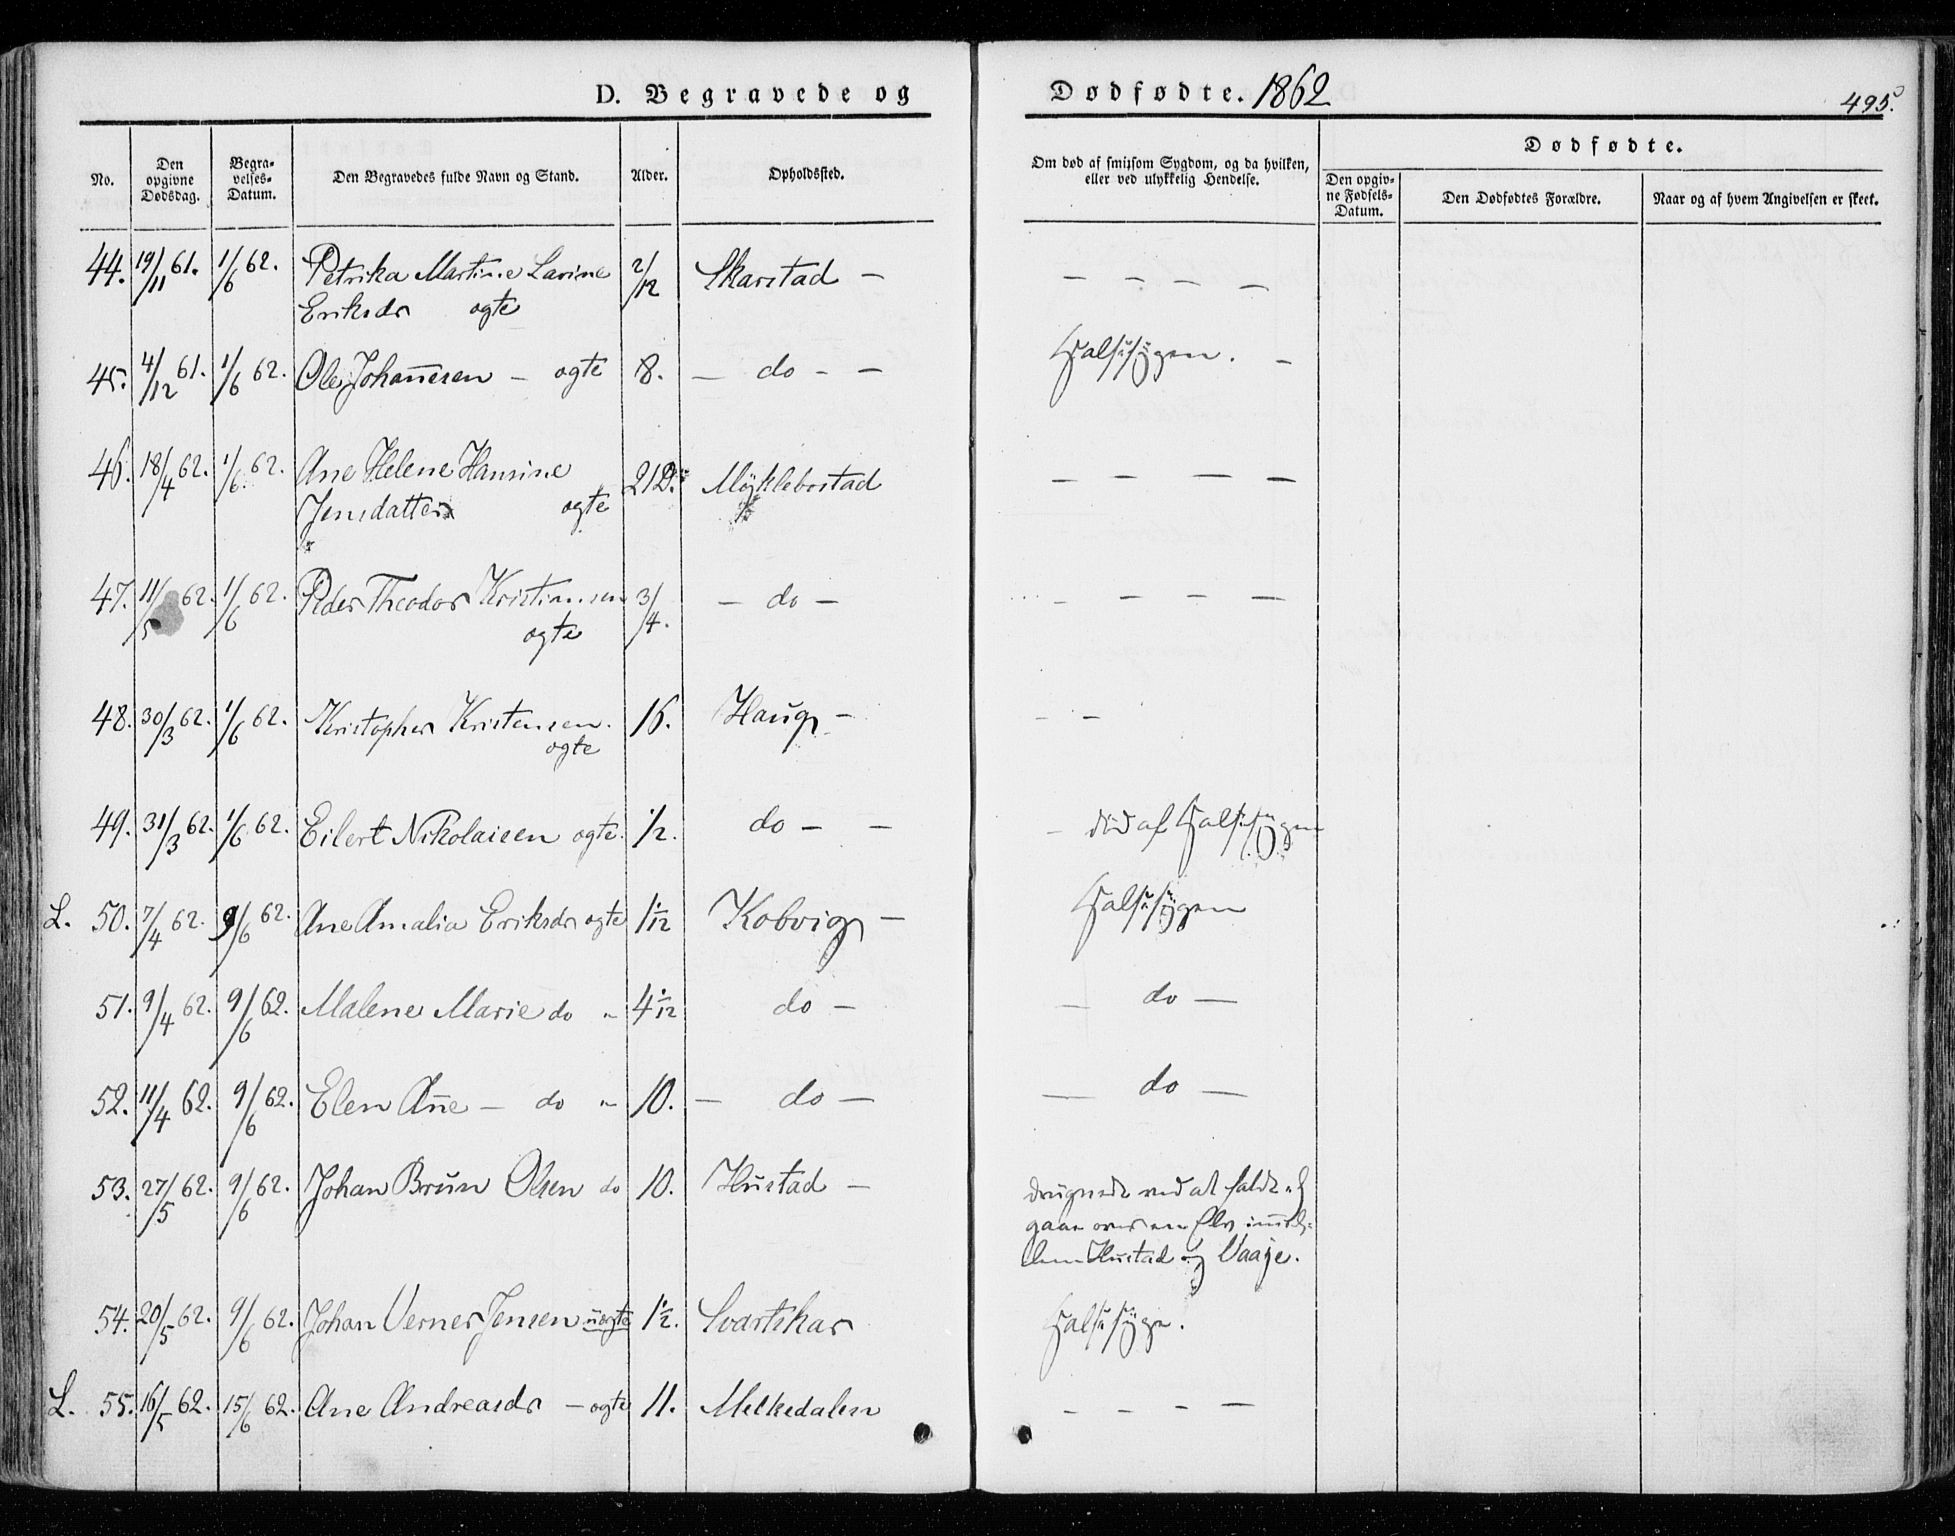 D. Begravede og
Dødfødte. 1862
495.
No.
Den opgivne Dødsdag.
Begravelses-Datum.
Den Begravedes fulde Navn og Stand.
Alder.
Opholdssted.
Om død af smitsom Sygdom, og da hvilken, eller ved ulykkelig Hendelse.
Dødfødte.
Den opgivne Fødsels-Datum.
Den Dødfødtes Forældre.
Naar og af hvem Angivelsen er skeet.
44. 19/11 61. 1/6 62. Petrika Martine Lavine 2/12 Skarstad — — — — —
Eriksdr ogte
45. 4/12 61. 1/6 62. Ole Johan̄esen — ogte 8. — do — — Halssygen. —
46. 18/4 62. 1/6 62. Ane Helene Hansine 21D. Møklebostad — — — —
Jensdatter ogte
47. 11/5 62. 1/6 62. Peder Theodor Kristiansen 3/4. — do — — — — —
ogte
48. 30/3 62. 1/6 62. Kristopher Kristensen. 16. Haug — — —
ogte
49. 31/3 62. 1/6 62. Eilert Nikolaisen ogte. 1/2. do — — — død af Halssygen
L. 50. 7/4 62. 9/6 62. Ane Amalia Eriksdr ogte 1 1/12 Kobvig — Halssygen
51. 9/4 62. 9/6 62. Malene Marie do " 4 1/12 do — — do —
52. 11/4 62. 9/6 62. Elen An̄e — do " 10. — do — — do —
53. 27/5 62. 9/6 62. Johan Brun Olsen do 10. Hustad — druknede ved at falde
gaae over en Elv im̄el-
lem Hustad og Vaage.
54. 20/5 62. 9/6 62. Johan Verner Jensen uogte 1 1/2. Svartskar Halssyge.
L. 55. 16/5 62. 15/6 62. Ane Andreasdr — ogte 11. Melkedalen — — — —